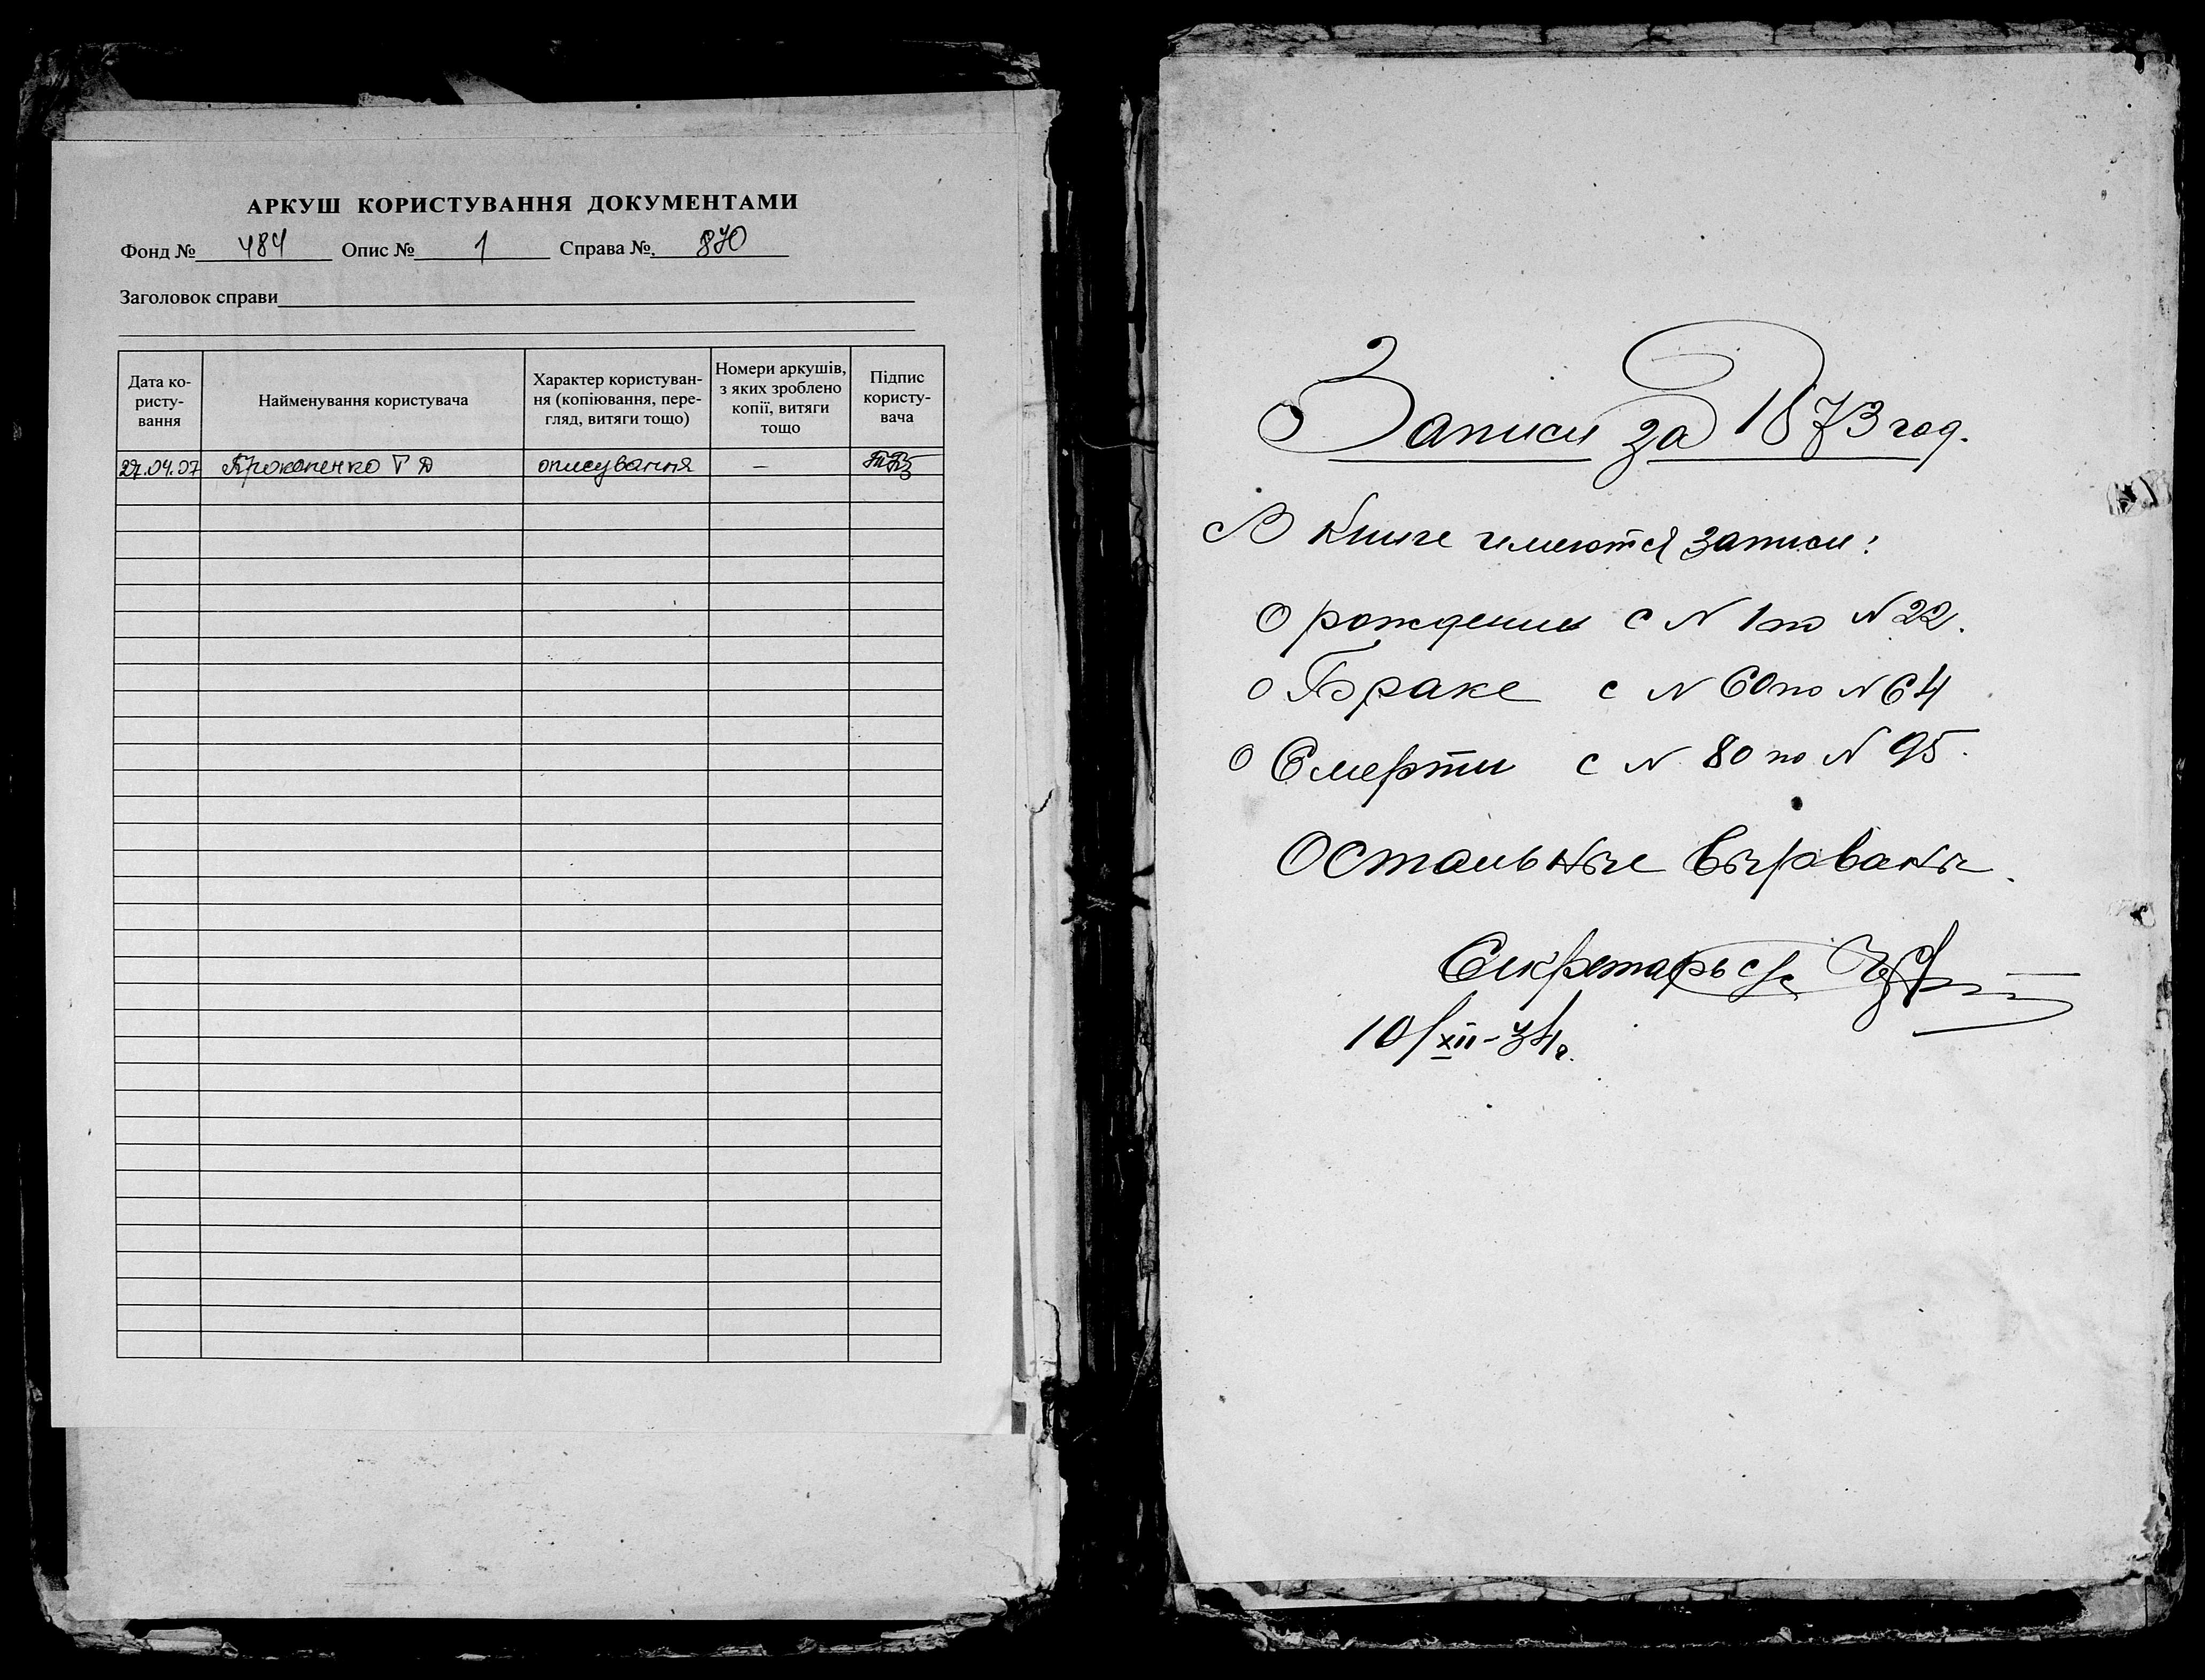 АРКУШ КОРИСТУВАННЯ ДОКУМЕНТАМИ
Фонд № 484 Опис № 1 Справа № 870
Заголовок справи
Дата ко-
ристу-
вання
Найменування користувача
Характер користуван-
ня (копіювання, пере-
гляд, витяги тощо)
Номери аркушів,
з яких зроблено
копії, витяги
тощо
Підпис
користу-
вача
27.04.07 Прокопенко Т В описування –
Записи за 1873 год.
В Книге имеются записи:
О рождении с N 1 по N 22.
О Браке с N 60 по N 64
О Смерти с N 80 по N 95.
Остальные вырваны.
Секретарь с/с
10/XII-34г.